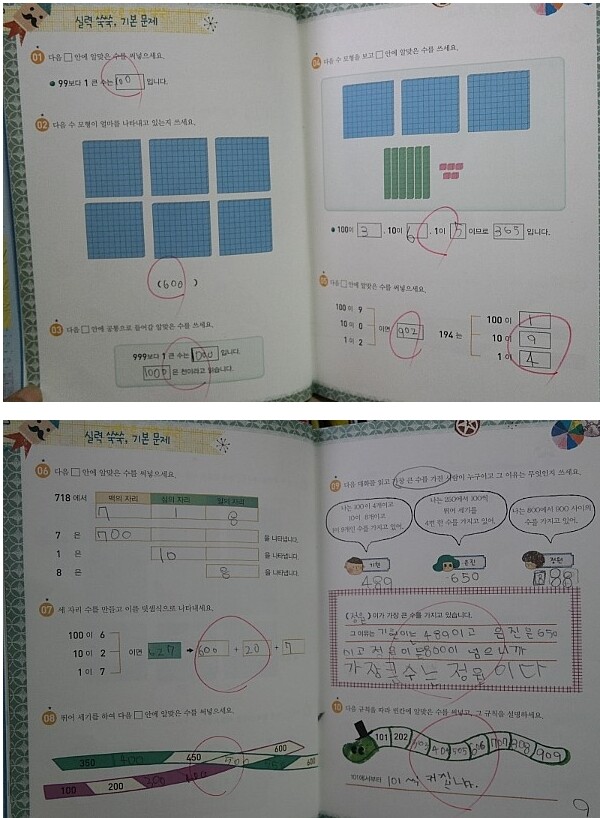 실력 쑥쑥, 기본 문제
01 다음 □ 안에 알맞은 수를 써넣으세요.
99보다 1 큰 수는 100 입니다.
02 다음 수 모형이 얼마를 나타내고 있는지 쓰세요.
(600)
03 다음 □ 안에 공통으로 들어갈 알맞은 수를 쓰세요.
999보다 1 큰 수는 1000 입니다.
1000 은 천이라고 읽습니다.
04 다음 수 모형을 보고 □ 안에 알맞은 수를 쓰세요.
100이 3, 10이 6, 1이 5 이므로 365 입니다.
05 다음 □ 안에 알맞은 수를 써넣으세요.
100이 9
10이 0 이면 902
1이 2
194는
100이 1
10이 9
1이 4
실력 쑥쑥, 기본 문제
06 다음 □ 안에 알맞은 수를 써넣으세요.
718에서 백의 자리 십의 자리 일의 자리
7 1 8
7 은 700 을 나타냅니다.
1 은 10 을 나타냅니다.
8 은 8 을 나타냅니다.
07 세 자리 수를 만들고 이를 덧셈식으로 나타내세요.
100이 6
10이 2 이면 627 → 600 + 20 + 7
1이 7
08 뛰어 세기를 하여 다음 □ 안에 알맞은 수를 써넣으세요.
600
350 400 450 500 600
100 200 300 400
09 다음 대화를 읽고 가장 큰 수를 가진 사람이 누구이고 그 이유는 무엇인지 쓰세요.
나는 100이 4개이고
10이 8개이고
1이 9개인 수를 가지고 있어.
나는 250에서 100씩
뛰어 세기를
4번 한 수를 가지고 있어.
나는 800에서 900 사이의
수를 가지고 있어.
기원 은진 정원
489 650 888
(정원)이가 가장 큰 수를 가지고 있습니다.
그 이유는 기원이는 489이고 은진은 650
이고 정원이는 800이 넘으니까
가장 큰 수는 정원이다
10 다음 규칙을 따라 빈칸에 알맞은 수를 써넣고, 그 규칙을 설명하세요.
101 202 303 404 505 606 707 808 909
101에서부터 101씩 커집니다.
9